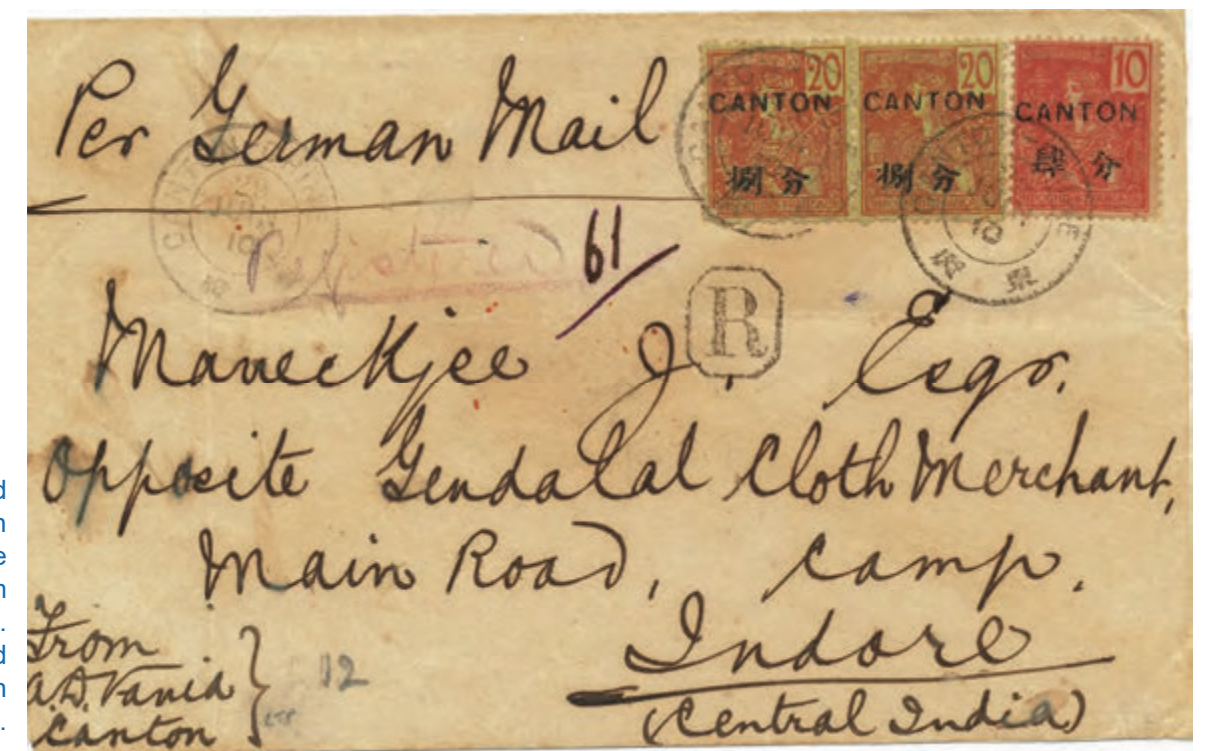 Per German Mail
20
20
10
CANTON
CANTON
CANTON
捌 分
捌 分
肆 分
10
10
Registered
61
R
Maneckjee J. Esqr.
Opposite Gendalal Cloth Merchant,
Main Road, Camp.
Indore
(Central India)
From
A.D. Vania
Canton
12
d
n
e
n
.
d
n
.